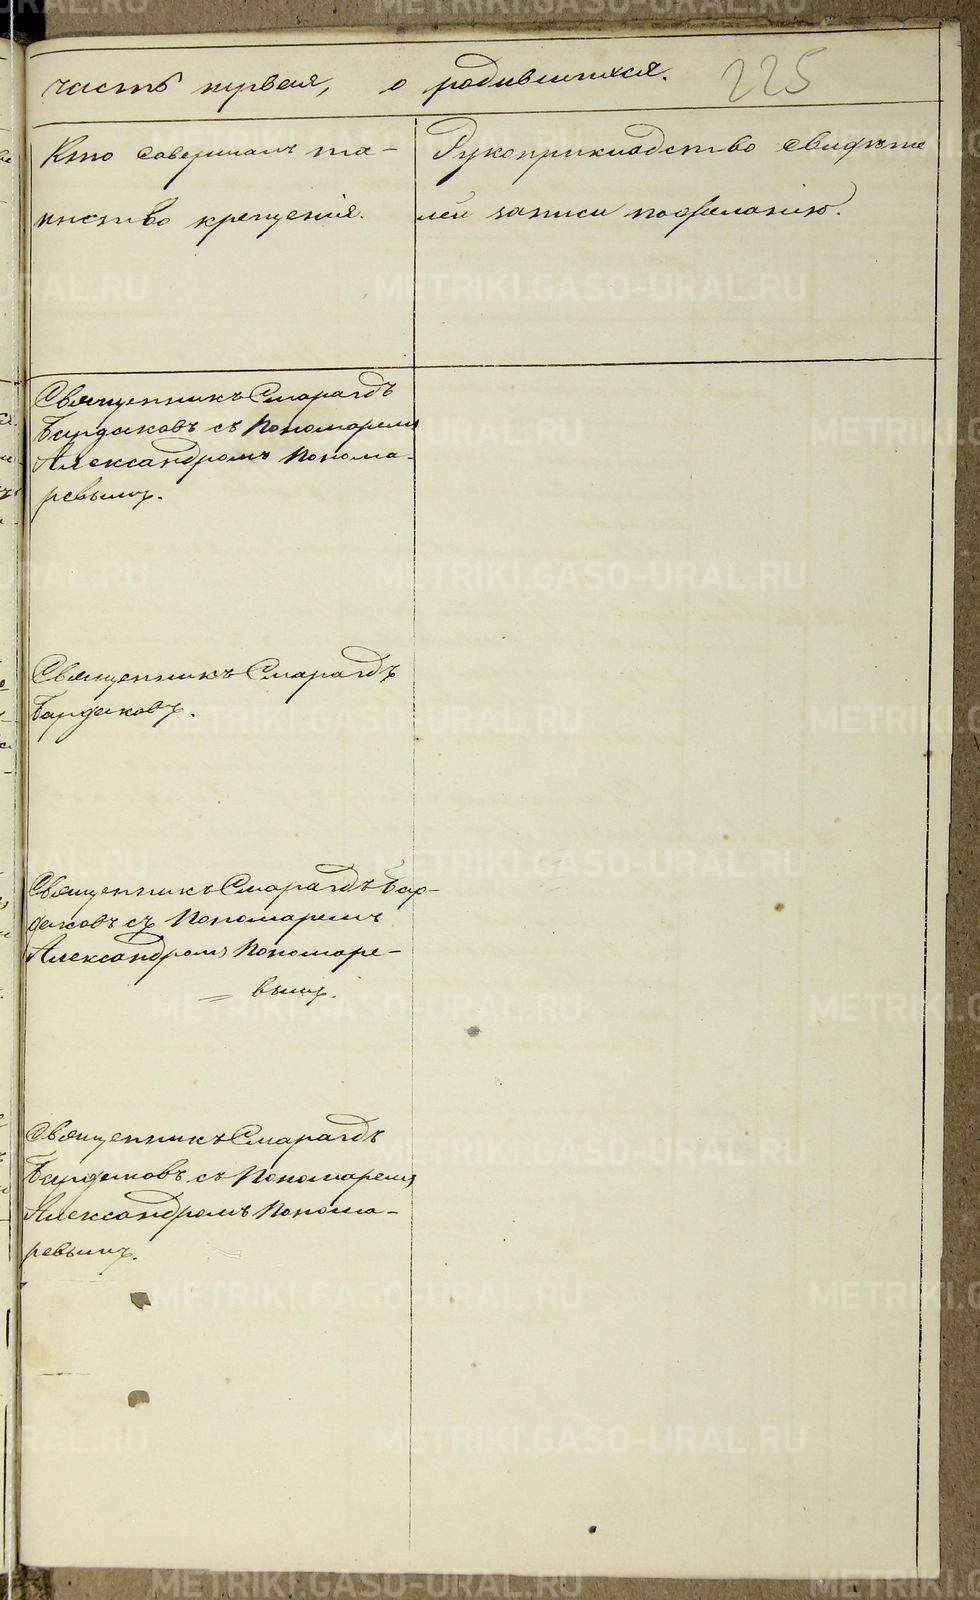 часть первая, о родившихся. 225
Кто совершалъ та-
инство крещенія.
Рукоприкладство свидѣте
лей записи по желанію.
Священникъ Смарагдъ
Бардаковъ съ Пономаремъ
Александромъ Понома-
ревымъ.
Священникъ Смарагдъ
Бардаковъ.
Священникъ Смарагдъ Бар-
даковъ съ Пономаремъ
Александромъ Пономаре-
= вымъ.
Священникъ Смарагдъ
Бардаковъ съ Пономаремъ
Александромъ Понома-
ревымъ.
METRIKI.GASO-URAL.RU